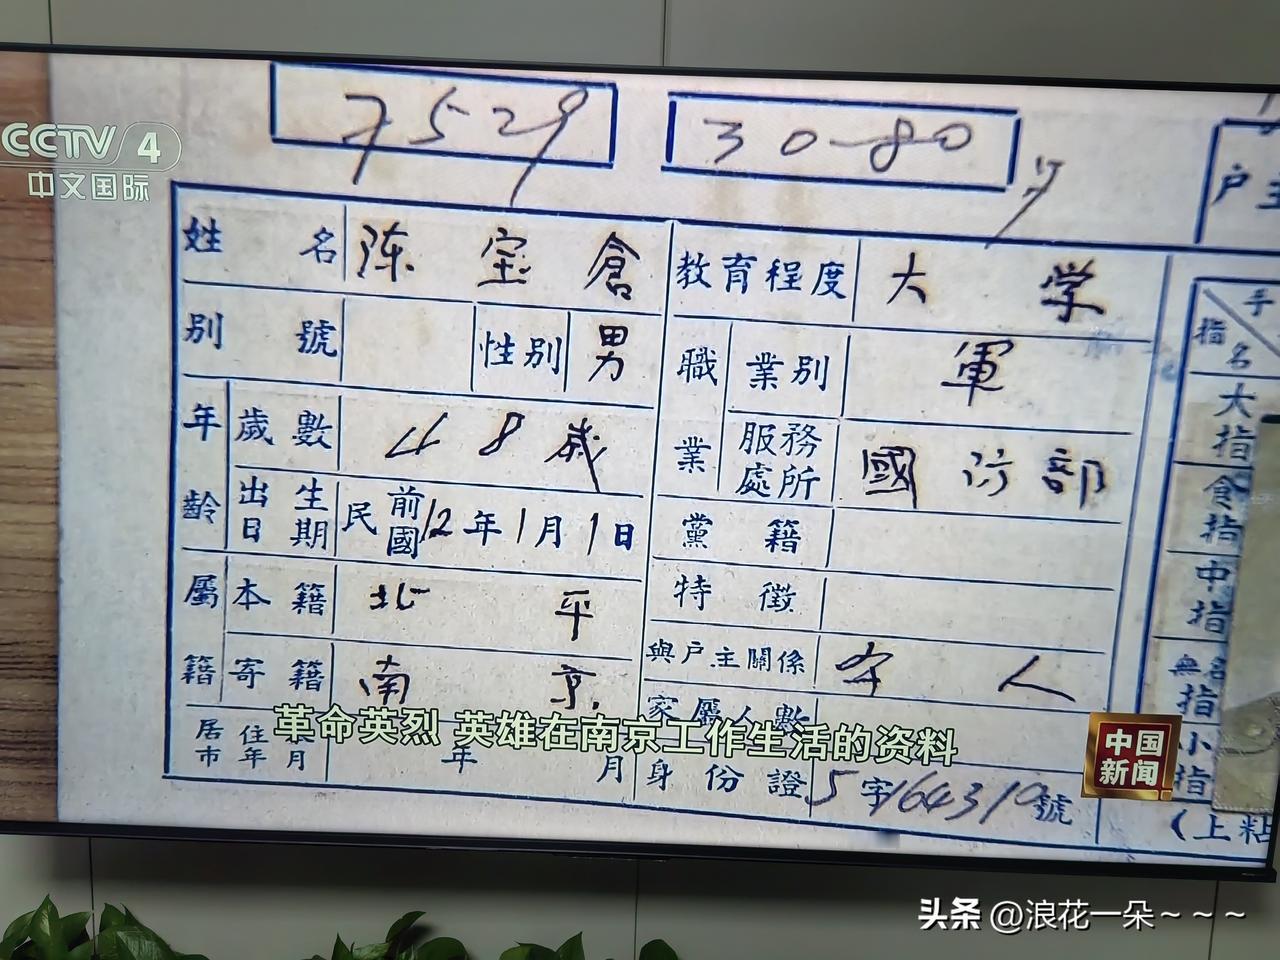 7529
30-80
CCTV 4
中文国际
户主
姓名 陈宝倉 教育程度 大学
别號 性别 男 職業 業别 軍
年齡 歲數 48歲 服務處所 國防部
出生日期 民國前12年1月1日 黨籍
屬籍 本籍 北平 特徵
寄籍 南京 與戶主關係
家屬人數
居住本市年月 年 月 身份證 5字164310號
手
指名
大指
食指
中指
無名指
小指
(上粘
革命英烈 英雄在南京工作生活的资料
中国新闻
头条 @浪花一朵~~~